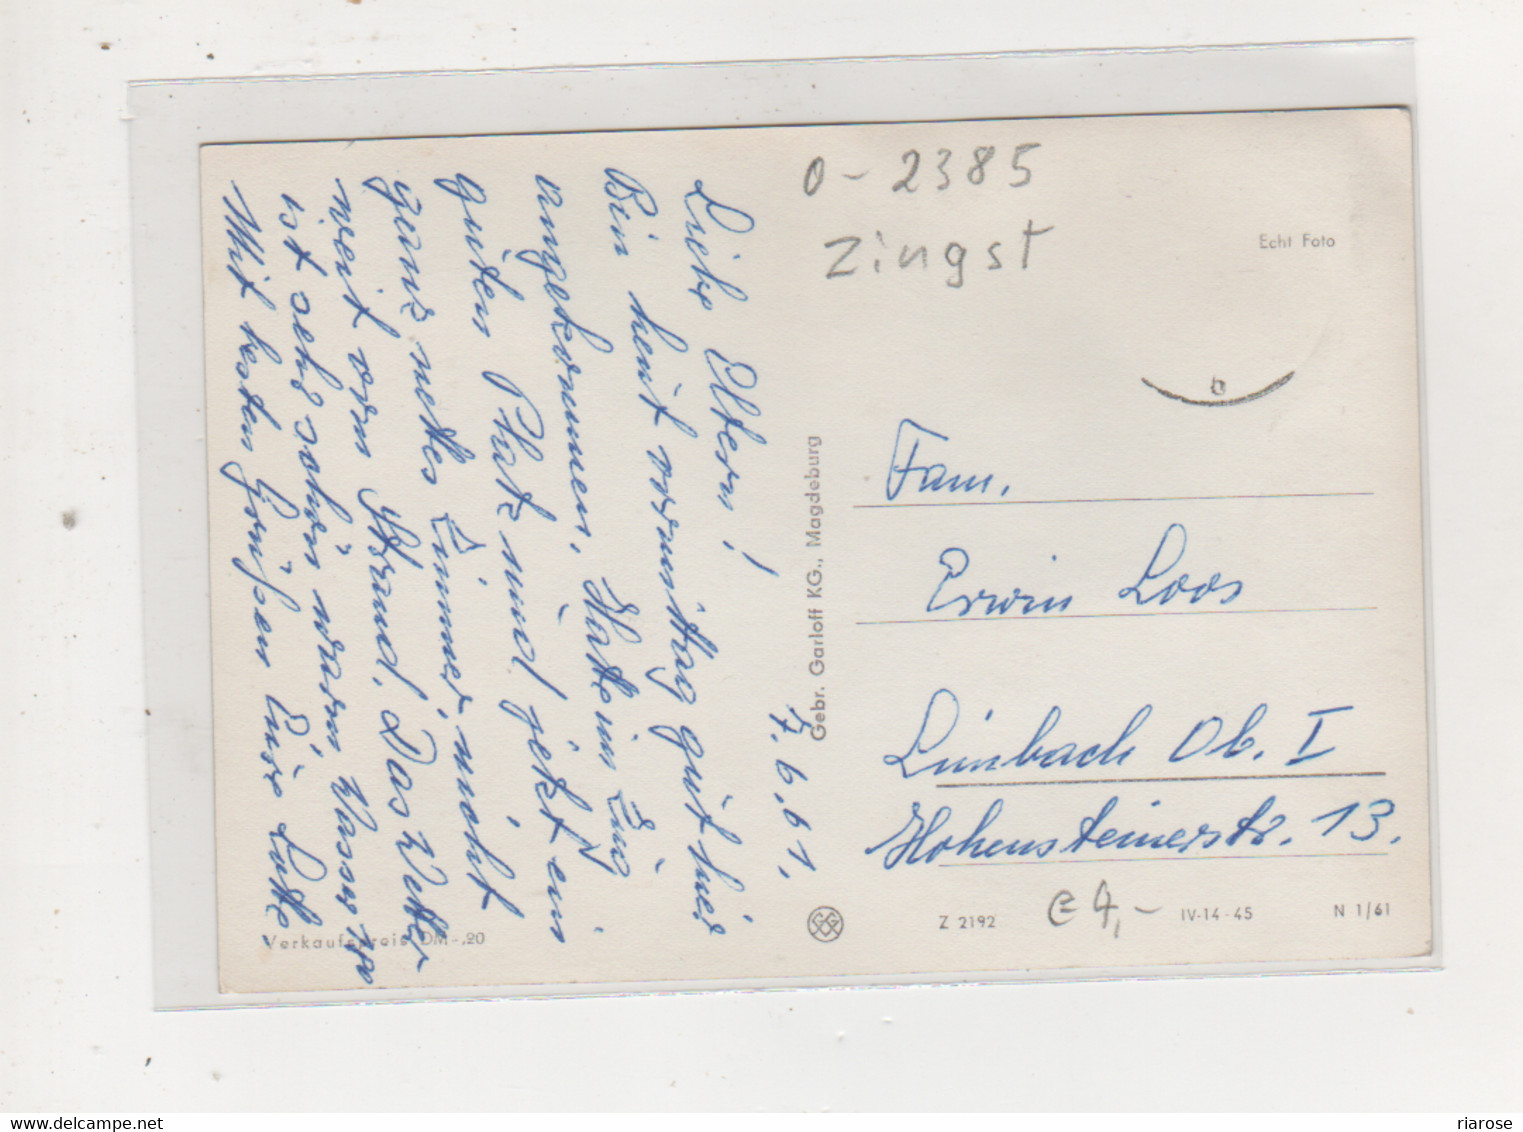 7.6.61.
Liebe Eltern!
Bin heut vormittag gut hier
angekommen. Hatte im Zug
guten Platz und jetzt ein
ganz nettes Zimmer, nicht
weit vom Strand. Das Wetter
ist sehr schön warm, Wasser 17°
Mit besten Grüßen Eure Lotte.
Verkaufspreis DM -,20
Gebr. Garloff KG., Magdeburg
0-2385
Zingst
Echt Foto
b
Fam.
Erwin Loos
Limbach Ob. I
Hohensteinerstr. 13.
Z 2192
€ 4,-
IV-14-45
N 1/61
riarose